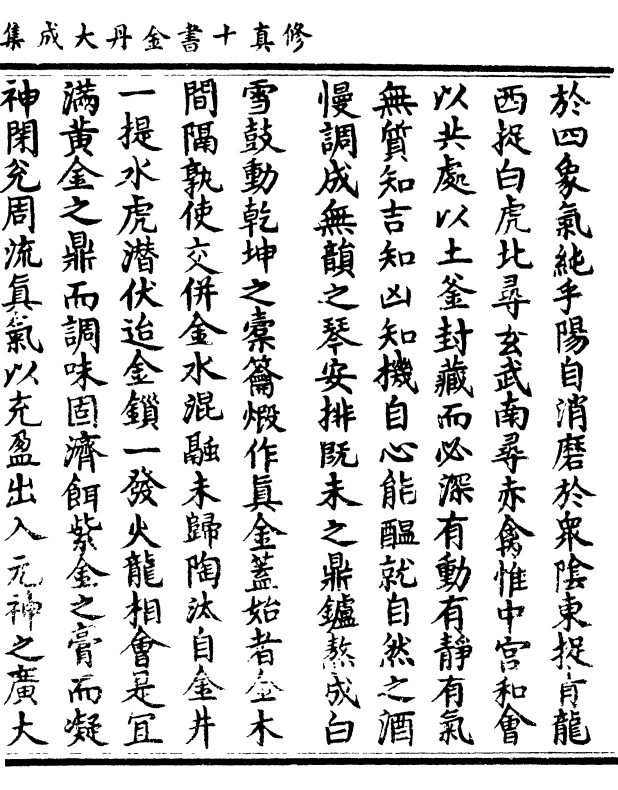 修真十書金丹大成集
於四象氣純乎陽自消磨於衆陰東捉青龍
西捉白虎北尋玄武南尋赤禽惟中宫和會
以共處以土釜封藏而必深有動有靜有氣
無質知吉知凶知機自心能醖就自然之酒
慢調成無韻之琴安排既未之鼎鑪熬成白
雪鼓動乾坤之橐籥煅作真金蓋始者金木
間隔孰使交併金水混融未歸陶汰自金井
一提水虎潜伏迨金鎖一發火龍相會是宜
滿黄金之鼎而調味固濟餌紫金之膏而凝
神閉兊周流真氣以充盈出入元神之廣大